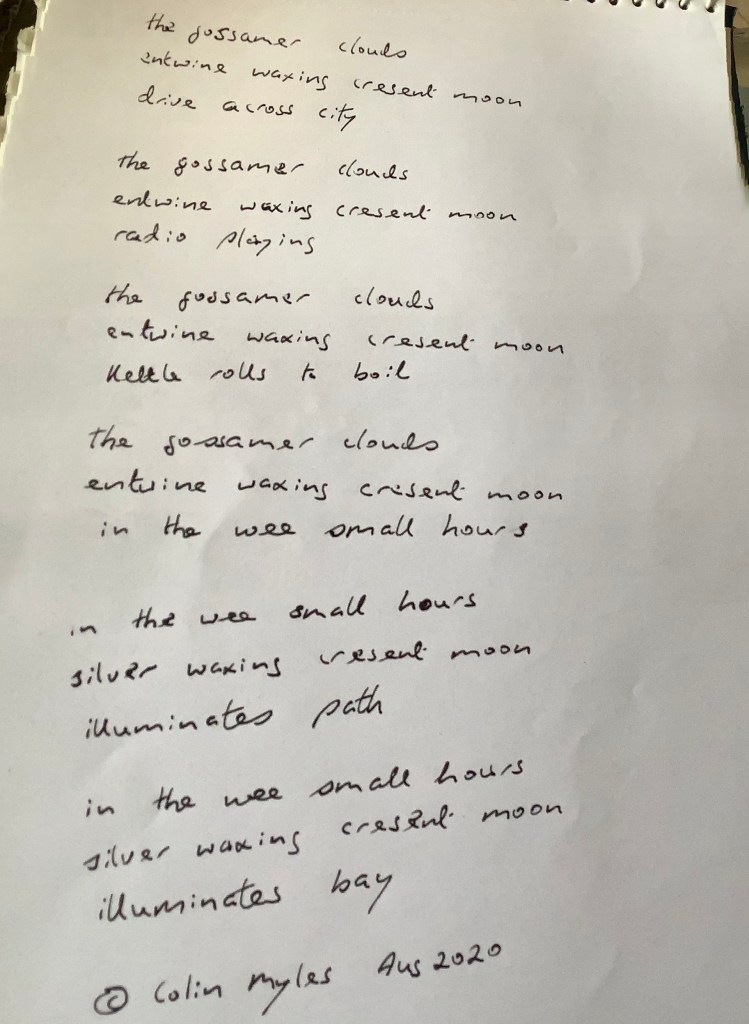 the gossamer clouds
entwine waxing cresent moon
drive across city
the gossamer clouds
entwine waxing cresent moon
radio playing
the gossamer clouds
entwine waxing cresent moon
Kettle rolls to boil
the gossamer clouds
entwine waxing cresent moon
in the wee small hours
in the wee small hours
silver waxing cresent moon
illuminates path
in the wee small hours
silver waxing cresent moon
illuminates bay
© Colin Myles Aug 2020